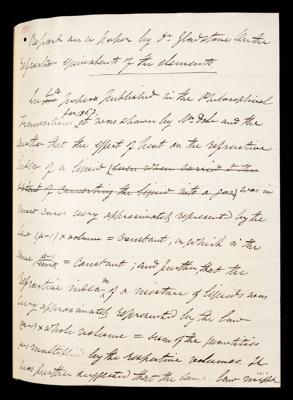 Report on a paper by Dr. Gladstone on the
refraction equivalents of the elements
In a Paper Published in the Philosophical
Transactions for 1863, it was shown by Mr. Dale and the
author that the effect of heat on the refractive
index of a liquid (even when carried to the
extent of converting the liquid into a gas) was in
most cases very approximately represented by the
law (μ-1) × volume = constant, or which is the
same, = constant; and further that the
refractive index of a mixture of liquids was
very approximately represented by the law
(μ-1) × whole volume = sum of the quantities
μ-1 multiplied by the respective volumes. It
was further suggested that the same law might